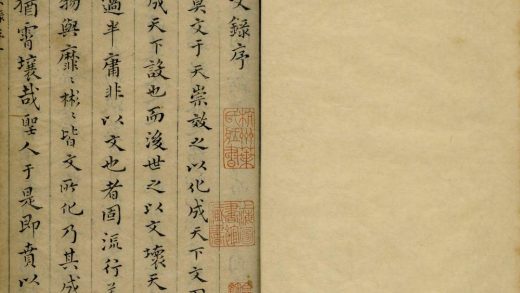 文錄序
莫文于天崇效之以化成天下文
成天下設也而後世之以文壞天
過半庸非以文也者固流行
物與靡〻彬〻皆文所化乃其成
猶霄壤哉聖人于是即賁以
杭州葉氏藏書